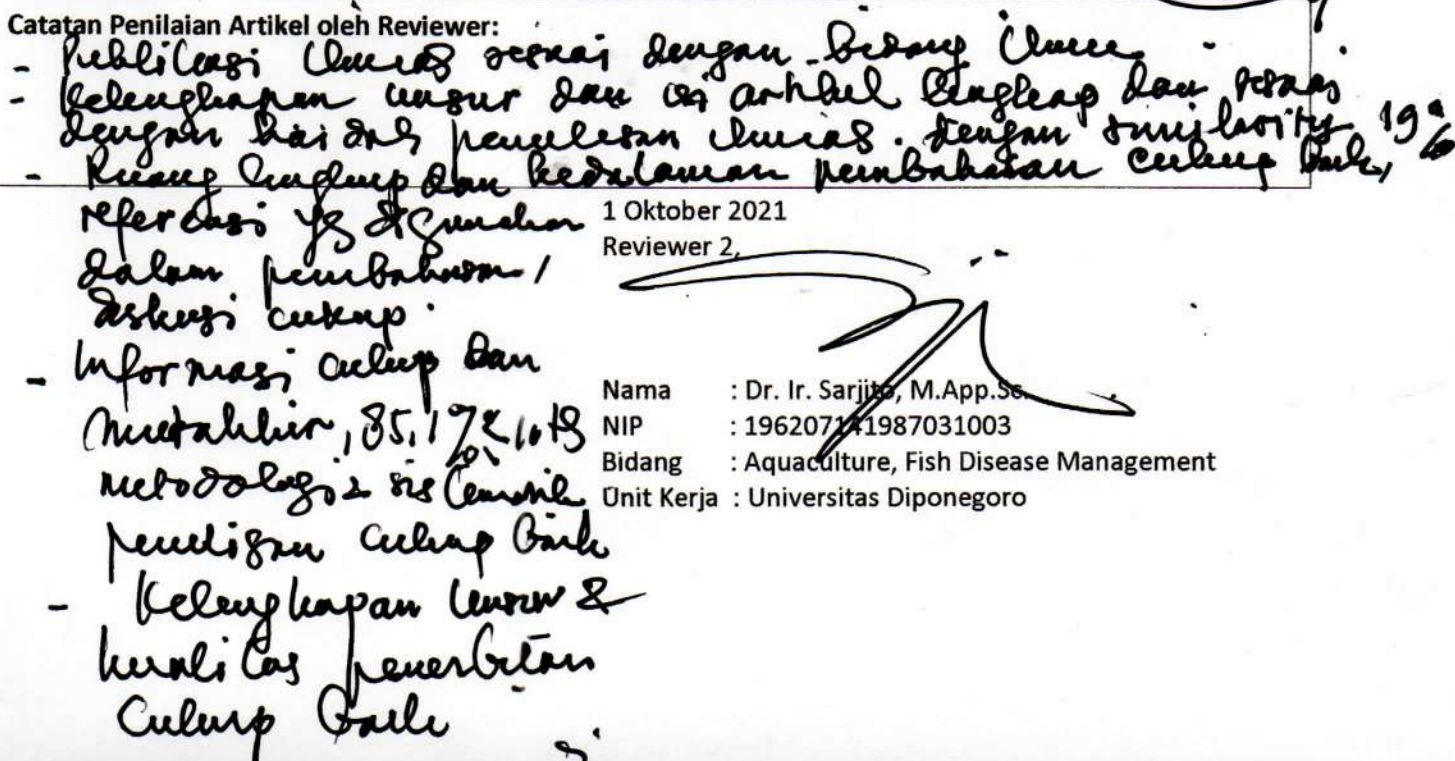 Catatan Penilaian Artikel oleh Reviewer:
- Publikasi Ilmiah sesuai dengan bidang Ilmu
- Kelengkapan unsur dan isi artikel lengkap dan sesuai
dengan kaidah penulisan Ilmiah. dengan similarity 19%
- Ruang lingkup dan kedalaman pembahasan cukup baik,
referensi yg digunakan
dalam pembahasan/
diskusi cukup.
- Informasi cukup dan
mutakhir, 85,1%
metodologi & sistematik
penulisan cukup baik
- Kelengkapan unsur &
kualitas penerbitan
cukup baik
1 Oktober 2021
Reviewer 2,
Nama : Dr. Ir. Sarjito, M.App.Sc.
NIP : 196207141987031003
Bidang : Aquaculture, Fish Disease Management
Unit Kerja : Universitas Diponegoro